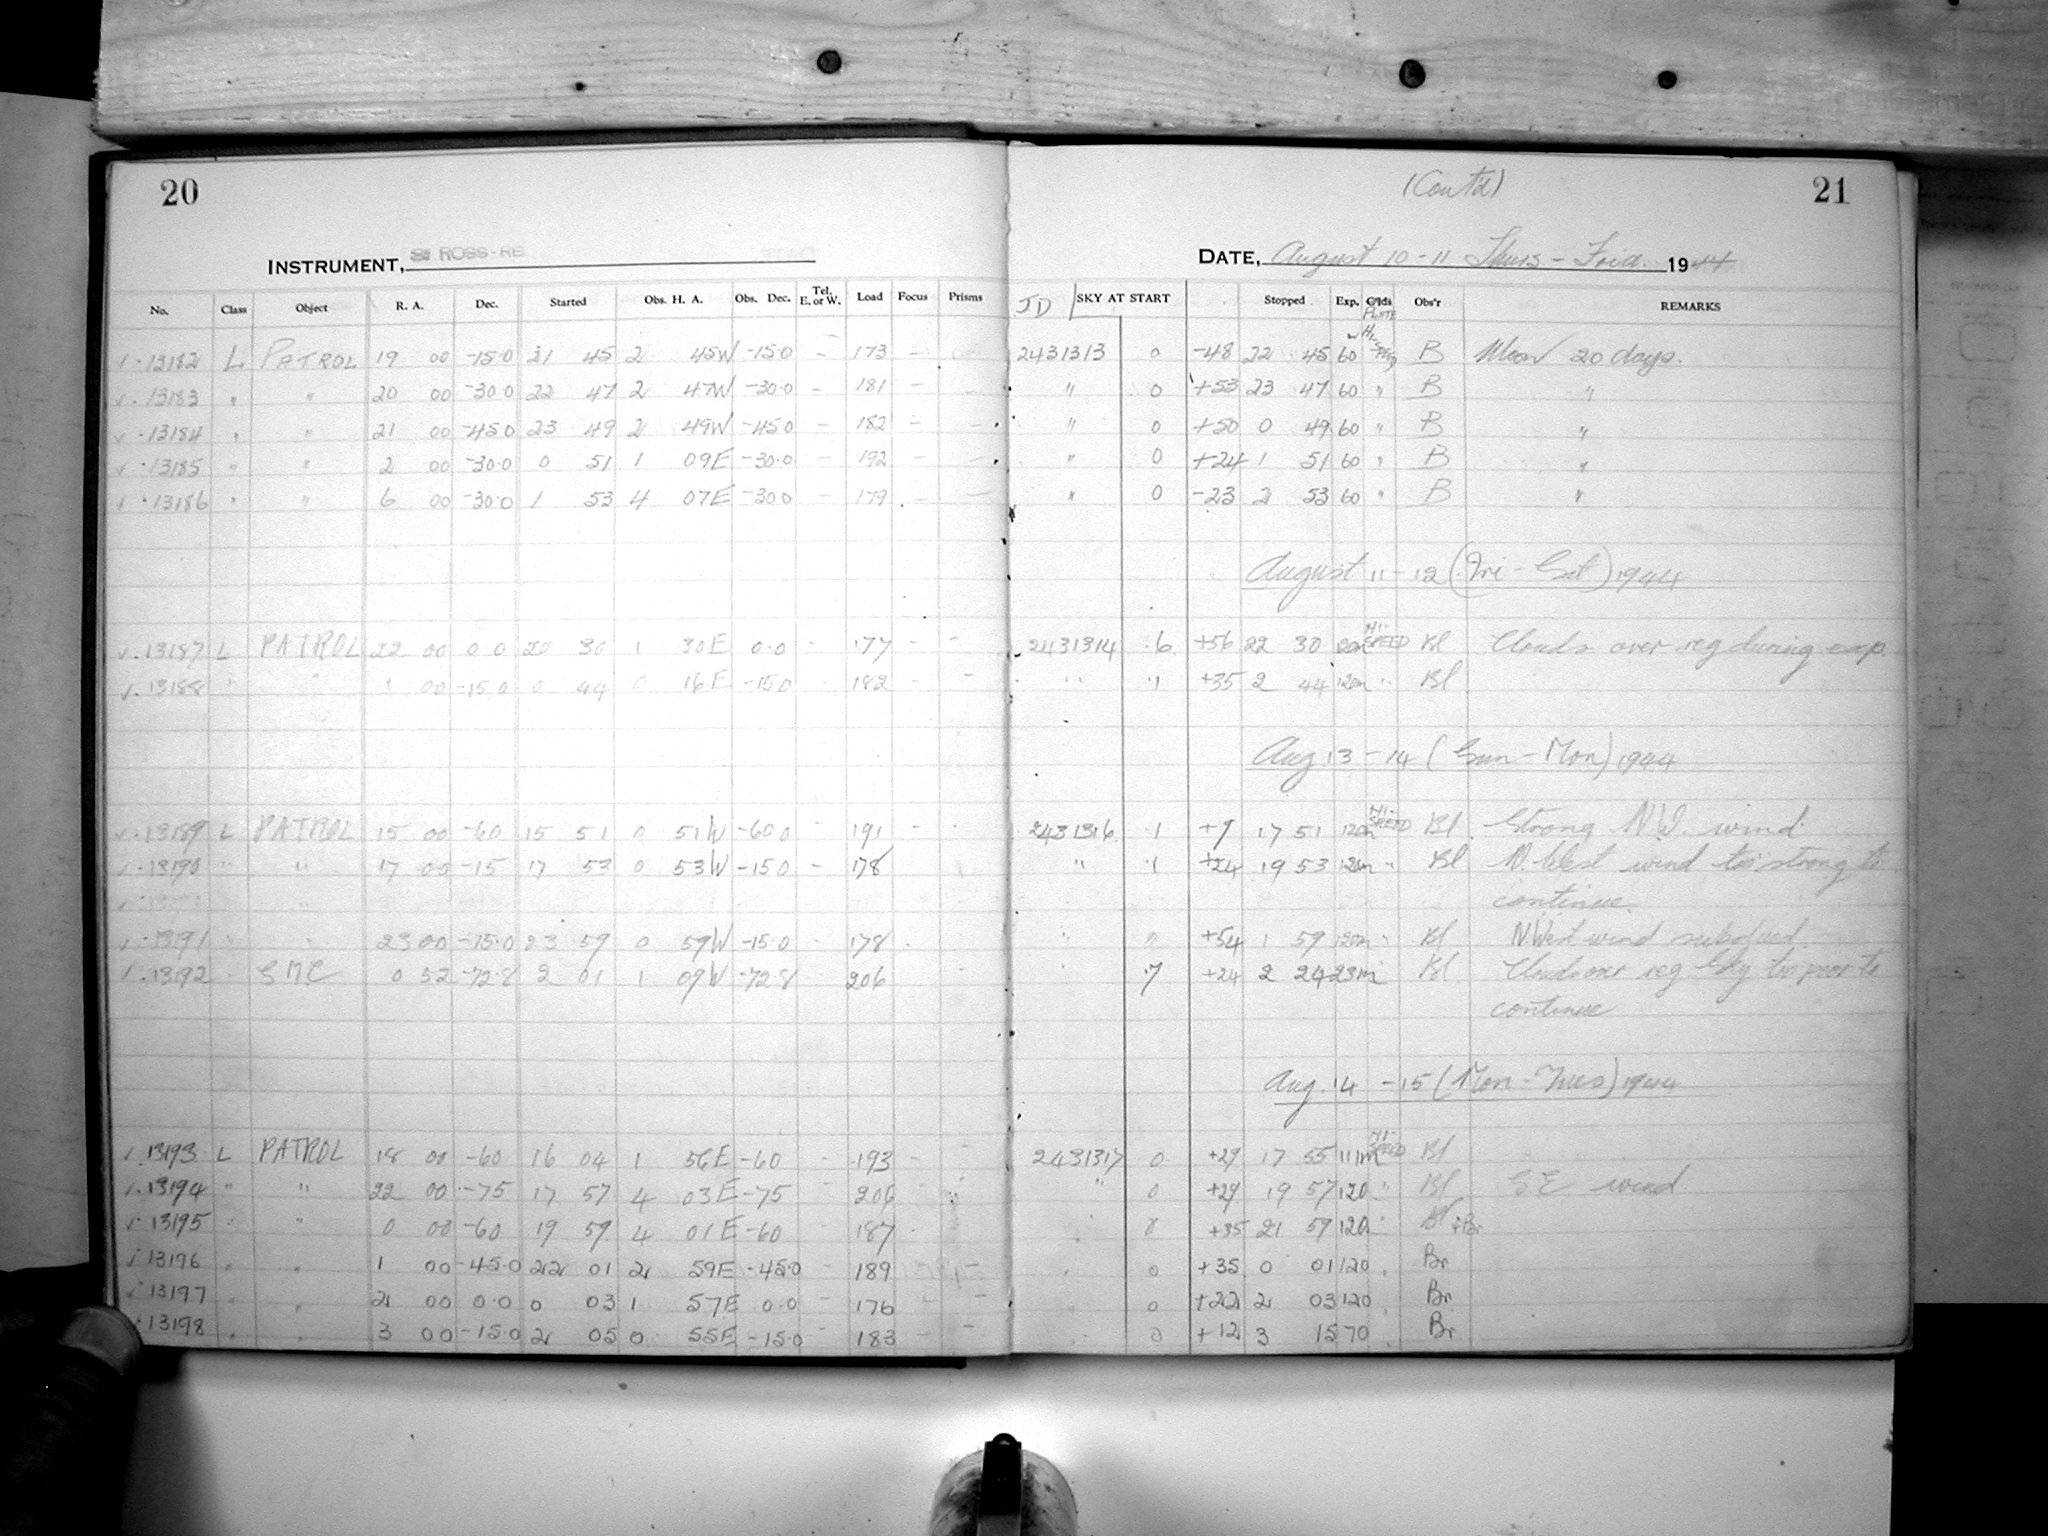 20
(Cont'd)
21
INSTRUMENT, ROSS-
DATE, August 10-11 Thurs-Frid. 1944
No. Class Object R. A. Dec. Started Obs. H. A. Obs. Dec. Tel. E. or W. Load Focus Prisms JD SKY AT START Stopped Exp. PLATE Obs'r REMARKS
13182 L PATROL 19 00 -15.0 21 45 2 45W -15.0 - 173 - 2431313 0 -48 22 45 60 B Moon 20 days.
13183 " " 20 00 -30.0 22 47 2 47W -30.0 - 181 - - " 0 +53 23 47 60 " B "
13184 " " 21 00 -45.0 23 49 2 49W -45.0 - 182 - - " 0 +50 0 49 60 " B "
13185 " " 2 00 -30.0 0 51 1 09E -30.0 - 192 - - " 0 +24 1 51 60 " B "
13186 " " 6 00 -30.0 1 53 4 07E -30.0 - 179 - - " 0 -23 2 53 60 " B "
August 11-12 (Fri-Sat) 1944
13187 L PATROL 22 00 0.0 20 30 1 30E 0.0 - 177 - - 2431314 .6 +56 22 30 120m HI-SPEED Bl Clouds over reg during exp.
13188 " " 1 00 -15.0 0 44 0 16E -15.0 - 182 - - " .1 +35 2 44 120m " Bl
Aug 13-14 (Sun-Mon) 1944
13189 L PATROL 15 00 -60 15 51 0 51W -60.0 191 - - 2431316 .1 +9 17 51 120m HI-SPEED Bl Strong N.W. wind.
13190 " " 17 00 -15 17 53 0 53W -15.0 - 178 " .1 +24 19 53 120m " Bl N. West wind too strong to
continue.
13191 " " 23 00 -15.0 23 59 0 59W -15.0 178 " 0 +54 1 59 120m " Bl N West wind subdued.
13192 SMC 0 52 -72.8 2 01 1 09W -72.8 206 .7 +24 2 24 23m Bl Clouds over reg Sky too poor to
continue
Aug. 14-15 (Mon-Tues) 1944
13193 L PATROL 18 00 -60 16 04 1 56E -60 - 193 - 2431317 0 +29 17 55 111m HI-SPEED Bl
13194 " " 22 00 -75 17 57 4 03E -75 - 206 " 0 +29 19 57 120 " Bl SE wind.
13195 " " 0 00 -60 19 59 4 01E -60 - 187 0 +35 21 59 120 Bl + Br
13196 " " 1 00 -45.0 22 01 2 59E -45.0 - 189 - - 0 +35 0 01 120 Br
13197 " " 2 00 0.0 0 03 1 57E 0.0 - 176 - - 0 +22 2 03 120 Br
13198 " " 3 00 -15.0 2 05 0 55E -15.0 - 183 - - 0 +12 3 15 70 Br